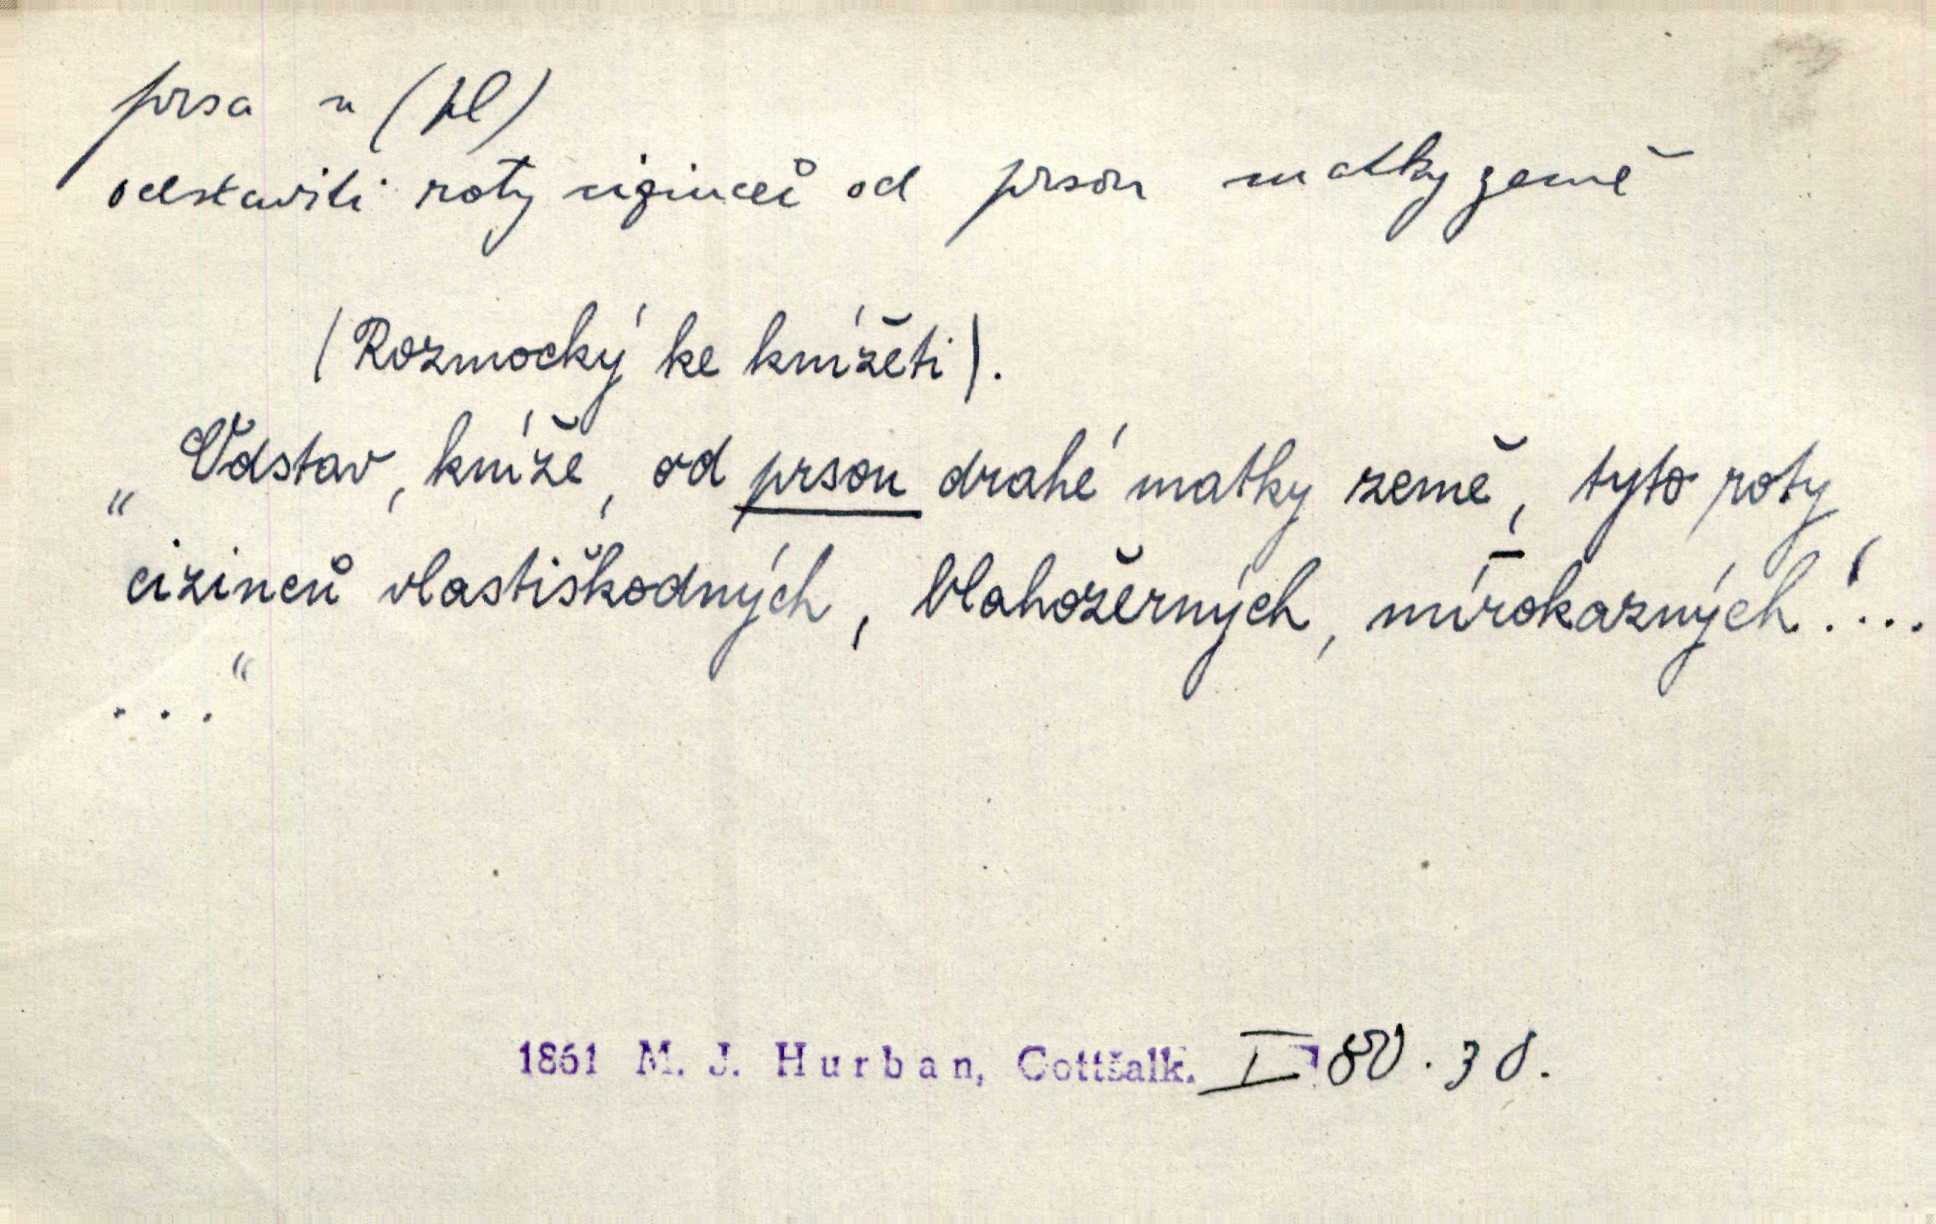 prsa n (pl)
odstaviti roty cizinců od prsou matky země
(Rozmocký ke knížěti).
„Odstav, kníže, od prsou drahé matky země, tyto roty
cizinců vlastiškodných, blahožerných, mírokazných!...
..."
1861 M. J. Hurban, Gottšalk. I 80. 38.